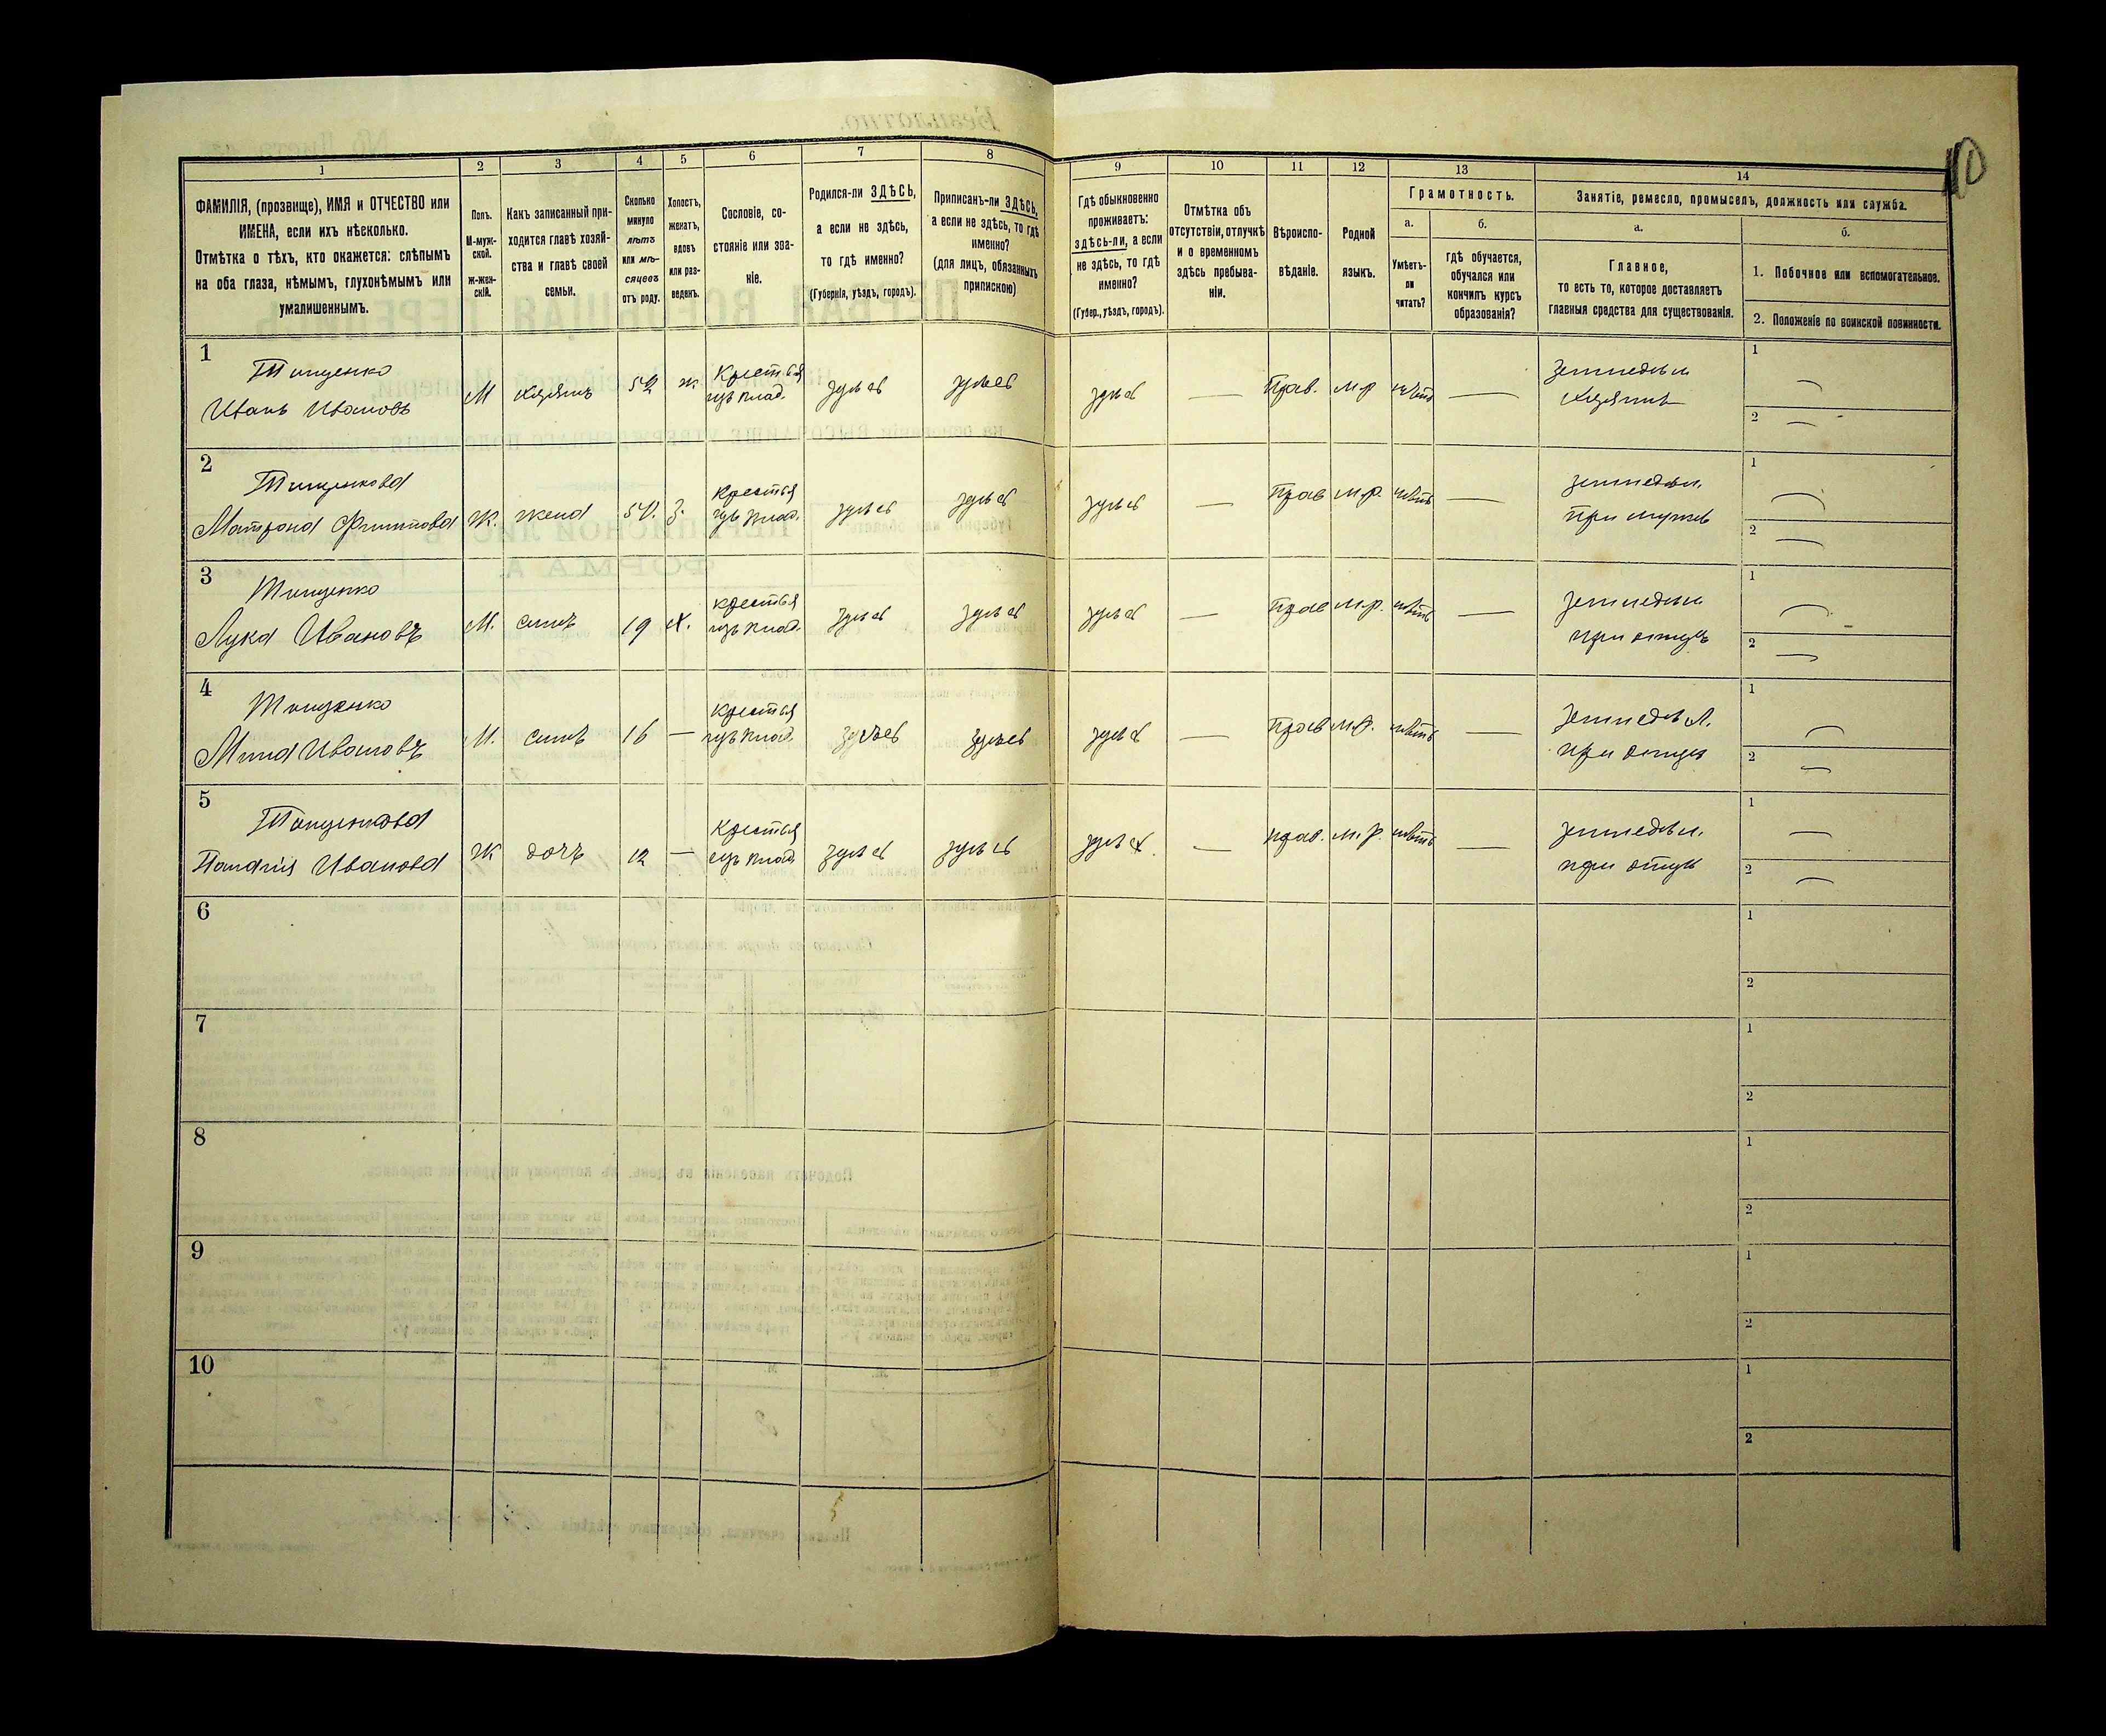 10
1
2
3
4
5
6
7
8
9
10
11
12
13
14
ФАМИЛІЯ, (прозвище), ИМЯ и ОТЧЕСТВО или
ИМЕНА, если ихъ нѣсколько.
Отмѣтка о тѣхъ, кто окажется: слѣпымъ
на оба глаза, нѣмымъ, глухонѣмымъ или
умалишеннымъ.
Полъ.
М-муж-
ской.
ж-жен-
скій.
Какъ записанный при-
ходится главѣ хозяй-
ства и главѣ своей
семьи.
Сколько
минуло
лѣтъ
или мѣ-
сяцевъ
отъ роду.
Холостъ,
женатъ,
вдовъ
или раз-
веденъ.
Сословіе, со-
стояніе или зва-
ніе.
Родился-ли ЗДѢСЬ,
а если не здѣсь,
то гдѣ именно?
(Губернія, уѣздъ, городъ).
Приписанъ-ли ЗДѢСЬ,
а если не здѣсь, то гдѣ
именно?
(для лицъ, обязанныхъ
припискою)
Гдѣ обыкновенно
проживаетъ:
здѣсь-ли, а если
не здѣсь, то гдѣ
именно?
(Губер., уѣздъ, городъ).
Отмѣтка объ
отсутствіи, отлучкѣ
и о временномъ
здѣсь пребыва-
ніи.
Вѣроиспо-
вѣданіе.
Родной
языкъ.
Грамотность.
а.
Умѣетъ-
ли
читать?
б.
гдѣ обучается,
обучался или
кончилъ курсъ
образованія?
Занятіе, ремесло, промыселъ, должность или служба.
а.
Главное,
то есть то, которое доставляетъ
главныя средства для существованія.
б.
1. Побочное или вспомогательное.
2. Положеніе по воинской повинности.
1
Тищенко
Иванъ Ивановъ
М
хозяинъ
52
ж.
Крестья
изъ влад.
здѣсь
здѣсь
здѣсь
—
Прав.
м.р
нѣтъ
—
земледѣл
хозяинъ
1
—
2
—
2
Тищенкова
Матрона Филиппова
Ж.
жена
50.
з.
Крестья
изъ влад.
здѣсь
здѣсь
здѣсь
—
Прав
м.р.
нѣтъ
—
земледѣл.
при мужѣ
1
—
2
—
3
Тищенко
Лука Ивановъ
М.
сынъ
19
х.
крестья
изъ влад.
здѣсь
здѣсь
здѣсь
—
Прав
м.р.
нѣтъ
—
земледѣл
при отцѣ
1
—
2
—
4
Тищенко
Мина Ивановъ
М.
сынъ
16
—
Крестья
изъ влад.
здѣсь
здѣсь
здѣсь
—
Прав
м.р.
нѣтъ
—
земледѣл.
при отцѣ
1
—
2
—
5
Тищенкова
Иванова
Ж
дочь
12
—
Крестья
изъ влад.
здѣсь
здѣсь
здѣсь
—
прав.
м.р.
нѣтъ
—
земледѣл.
при отцѣ
1
—
2
—
6
1
2
7
1
2
8
1
2
9
1
2
10
1
2